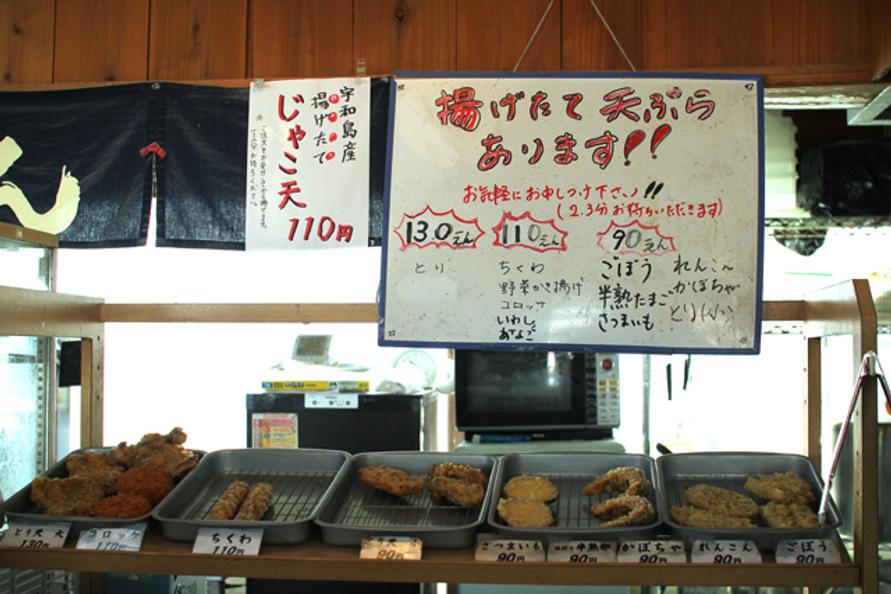 ん
宇和島産
揚げたて
じゃこ天
110円
揚げたて 天ぷら
あります!!
お気軽にお申しつけ下さい!!
(2.3分お待ちいただきます)
130えん
とり
110えん
ちくわ
野菜かき揚げ
コロッケ
いわし
あなご
90えん
ごぼう
半熟たまご
さつまいも
れんこん
かぼちゃ
とり(小)
とり天 大
130円
コロッケ
110円
ちくわ
110円
とり天 小
90円
さつまいも
90円
半熟卵
90円
かぼちゃ
90円
れんこん
90円
ごぼう
90円